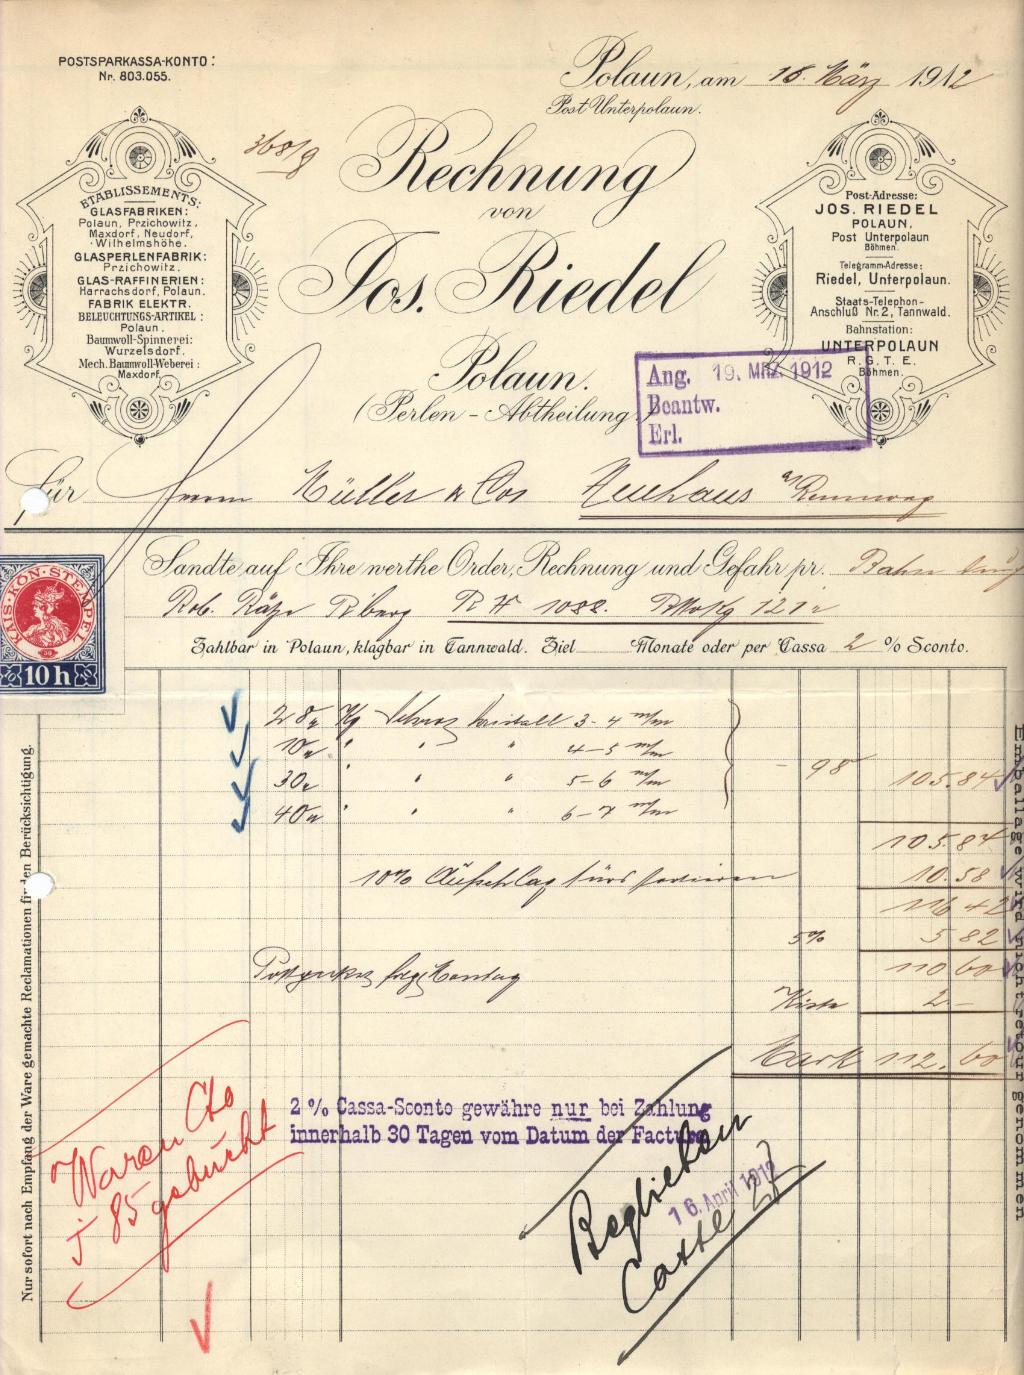 POSTSPARKASSA-KONTO:
Nr. 803.055.
Polaun, am 18. März 1912
Post Unterpolaun.
368/9
Rechnung
von
Jos. Riedel
Polaun.
(Perlen-Abtheilung.)
ETABLISSEMENTS:
GLASFABRIKEN:
Polaun, Przichowitz,
Maxdorf, Neudorf,
Wilhelmshöhe.
GLASPERLENFABRIK:
Przichowitz.
GLAS-RAFFINERIEN:
Harrachsdorf, Polaun.
FABRIK ELEKTR.
BELEUCHTUNGS-ARTIKEL:
Polaun.
Baumwoll-Spinnerei:
Wurzelsdorf.
Mech. Baumwoll-Weberei:
Maxdorf.
Post-Adresse:
JOS. RIEDEL
POLAUN.
Post Unterpolaun
Böhmen.
Telegramm-Adresse:
Riedel, Unterpolaun.
Staats-Telephon-
Anschluß Nr. 2, Tannwald.
Bahnstation:
UNTERPOLAUN
R. G. T. E.
Böhmen.
Ang. 19. MRZ. 1912
Beantw.
Erl.
Für Herrn Müller & Cos Neuhaus a/ Rennweg
Sandte auf Ihre werthe Order, Rechnung und Gefahr pr. Bahn
Rob. R# 1088. 121
Zahlbar in Polaun, klagbar in Tannwald. Ziel Monate oder per Cassa 2 % Sconto.
KAIS·KÖN·STEMPEL
10 h
28 Kg 3-4 m/m
10 " " " 4-5 m/m
30 " " " 5-6 m/m - 98 105.84
40 " " " 6-7 m/m
105.84
10% Aufschlag fürs 10.58
116 42
5% 5 82
110 60
Kiste 2.-
Mark 112.60
2 % Cassa-Sconto gewähre nur bei Zahlung
innerhalb 30 Tagen vom Datum der Factura
Waren Cto
j 85 gebucht
Beglichen
16. April 1912
Casse 27
Nur sofort nach Empfang der Ware gemachte Reclamationen finden Berücksichtigung.
Emballage wird nicht retour genommen